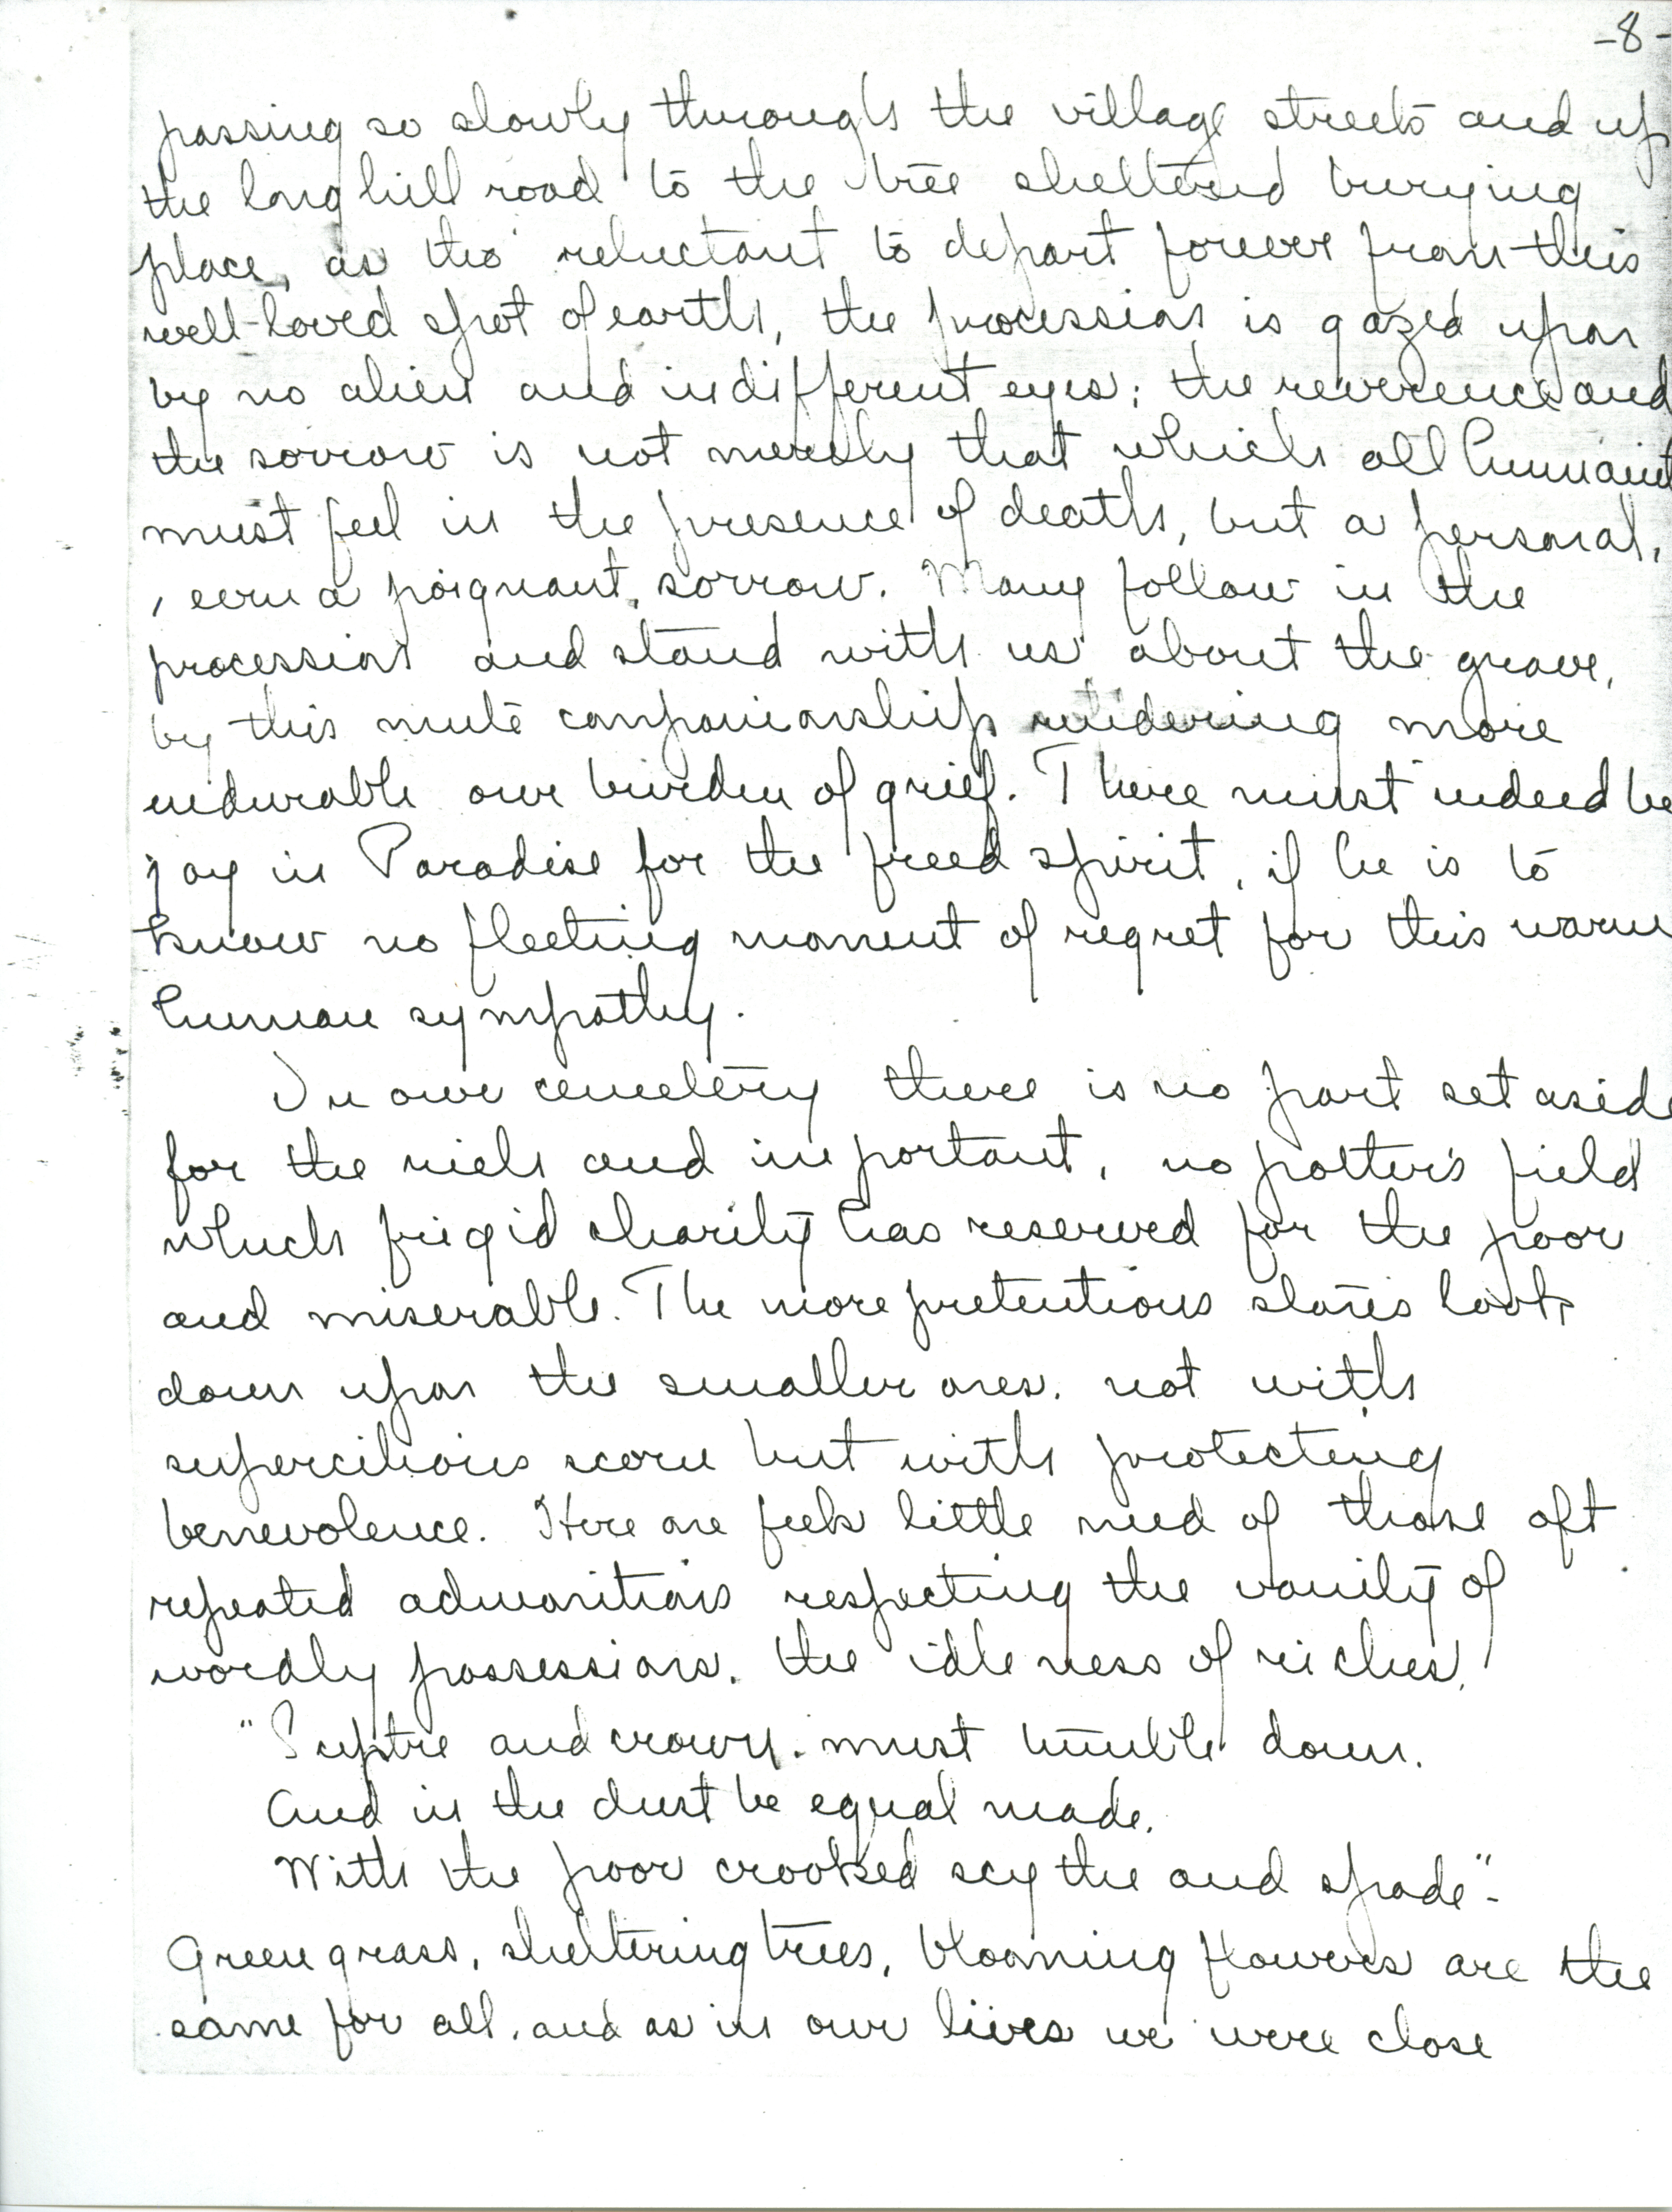 -8-
passing so slowly through the village streets and up
the long hill road to the tree sheltered burying
place, as tho' reluctant to depart forever from this
well-loved spot of earth, the procession is gazed upon
by no alien and indifferent eyes; the reverence and
the sorrow is not merely that which all humanit
must feel in the presence of death, but a personal,
, even a poignant, sorrow. Many follow in the
procession and stand with us about the grave,
by this mute companionship rendering more
endurable our burden of grief. There must indeed be
joy in Paradise for the freed spirit, if he is to
know no fleeting moment of regret for this warm
human sympathy.
In our cemetery there is no part set aside
for the rich and important, no potter's field
which frigid charity has reserved for the poor
and miserable. The more pretentious stones look
down upon the smaller ones, not with
supercilious scorn but with protecting
benevolence. Here one feels little need of those oft
repeated admonitions respecting the vanity of
wordly possessions, the idleness of riches,
"Sceptre and crown, must tumble down.
And in the dust be equal made.
With the poor crooked scythe and spade"-
Green grass, sheltering trees, blooming flowers are the
same for all, and as in our lives we were close